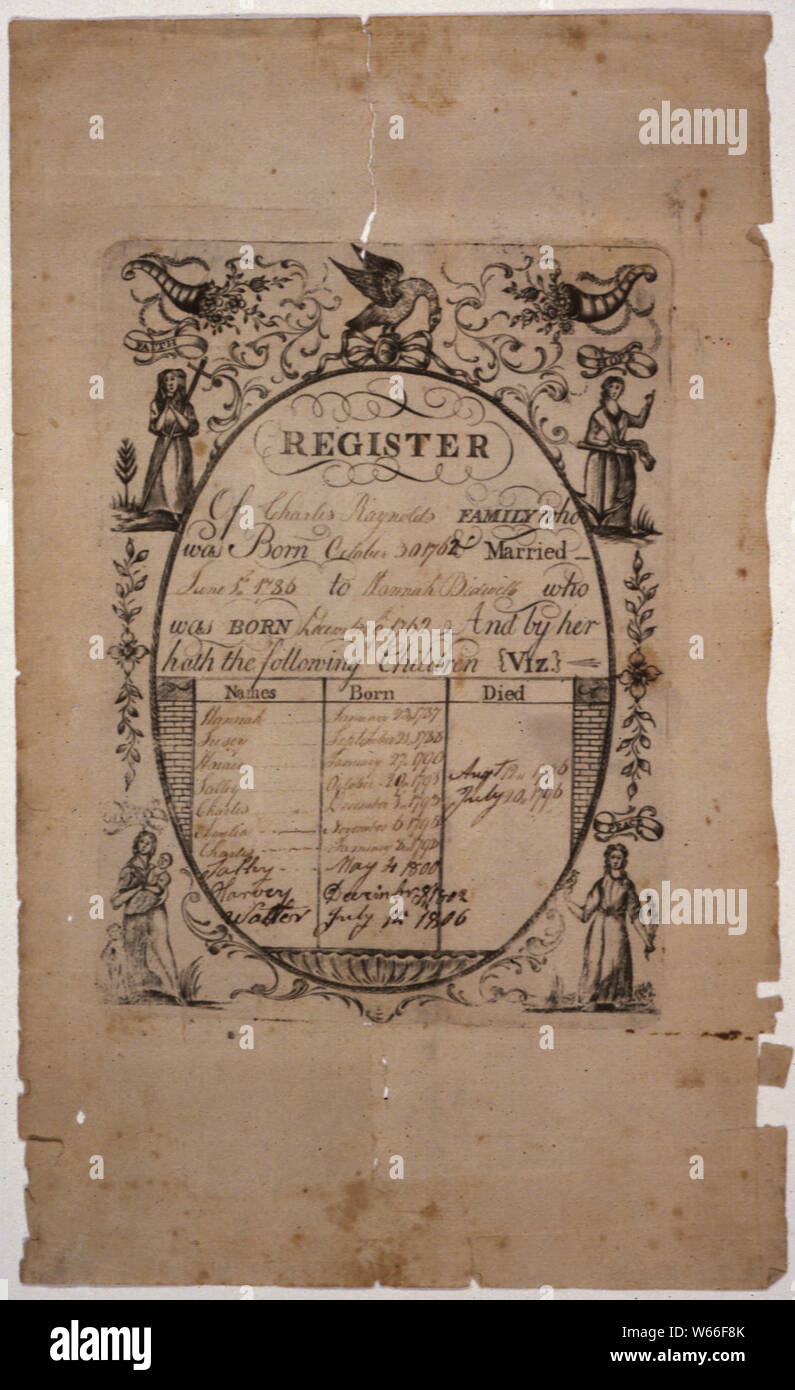 FAITH
HOPE
REGISTER
Of Charles Raynolds FAMILY who
was Born October 30 1762 Married
June 5th 1786 to Hannah Bidwell who
was BORN December 1762 And by her
hath the following Children {Viz.}
Names Born Died
Hannah January 23 1787
September 21 1788
January 27 1790
Salley October 20 1791 Augt 12 1796
Charles December 3 1793 July 10 1796
Amelia November 6 1795
Charles January 1798
Salley May 4 1800
Harvey 1802
Walter July 1st 1806
PEACE
alamy
Image ID: W66F8K
www.alamy.com